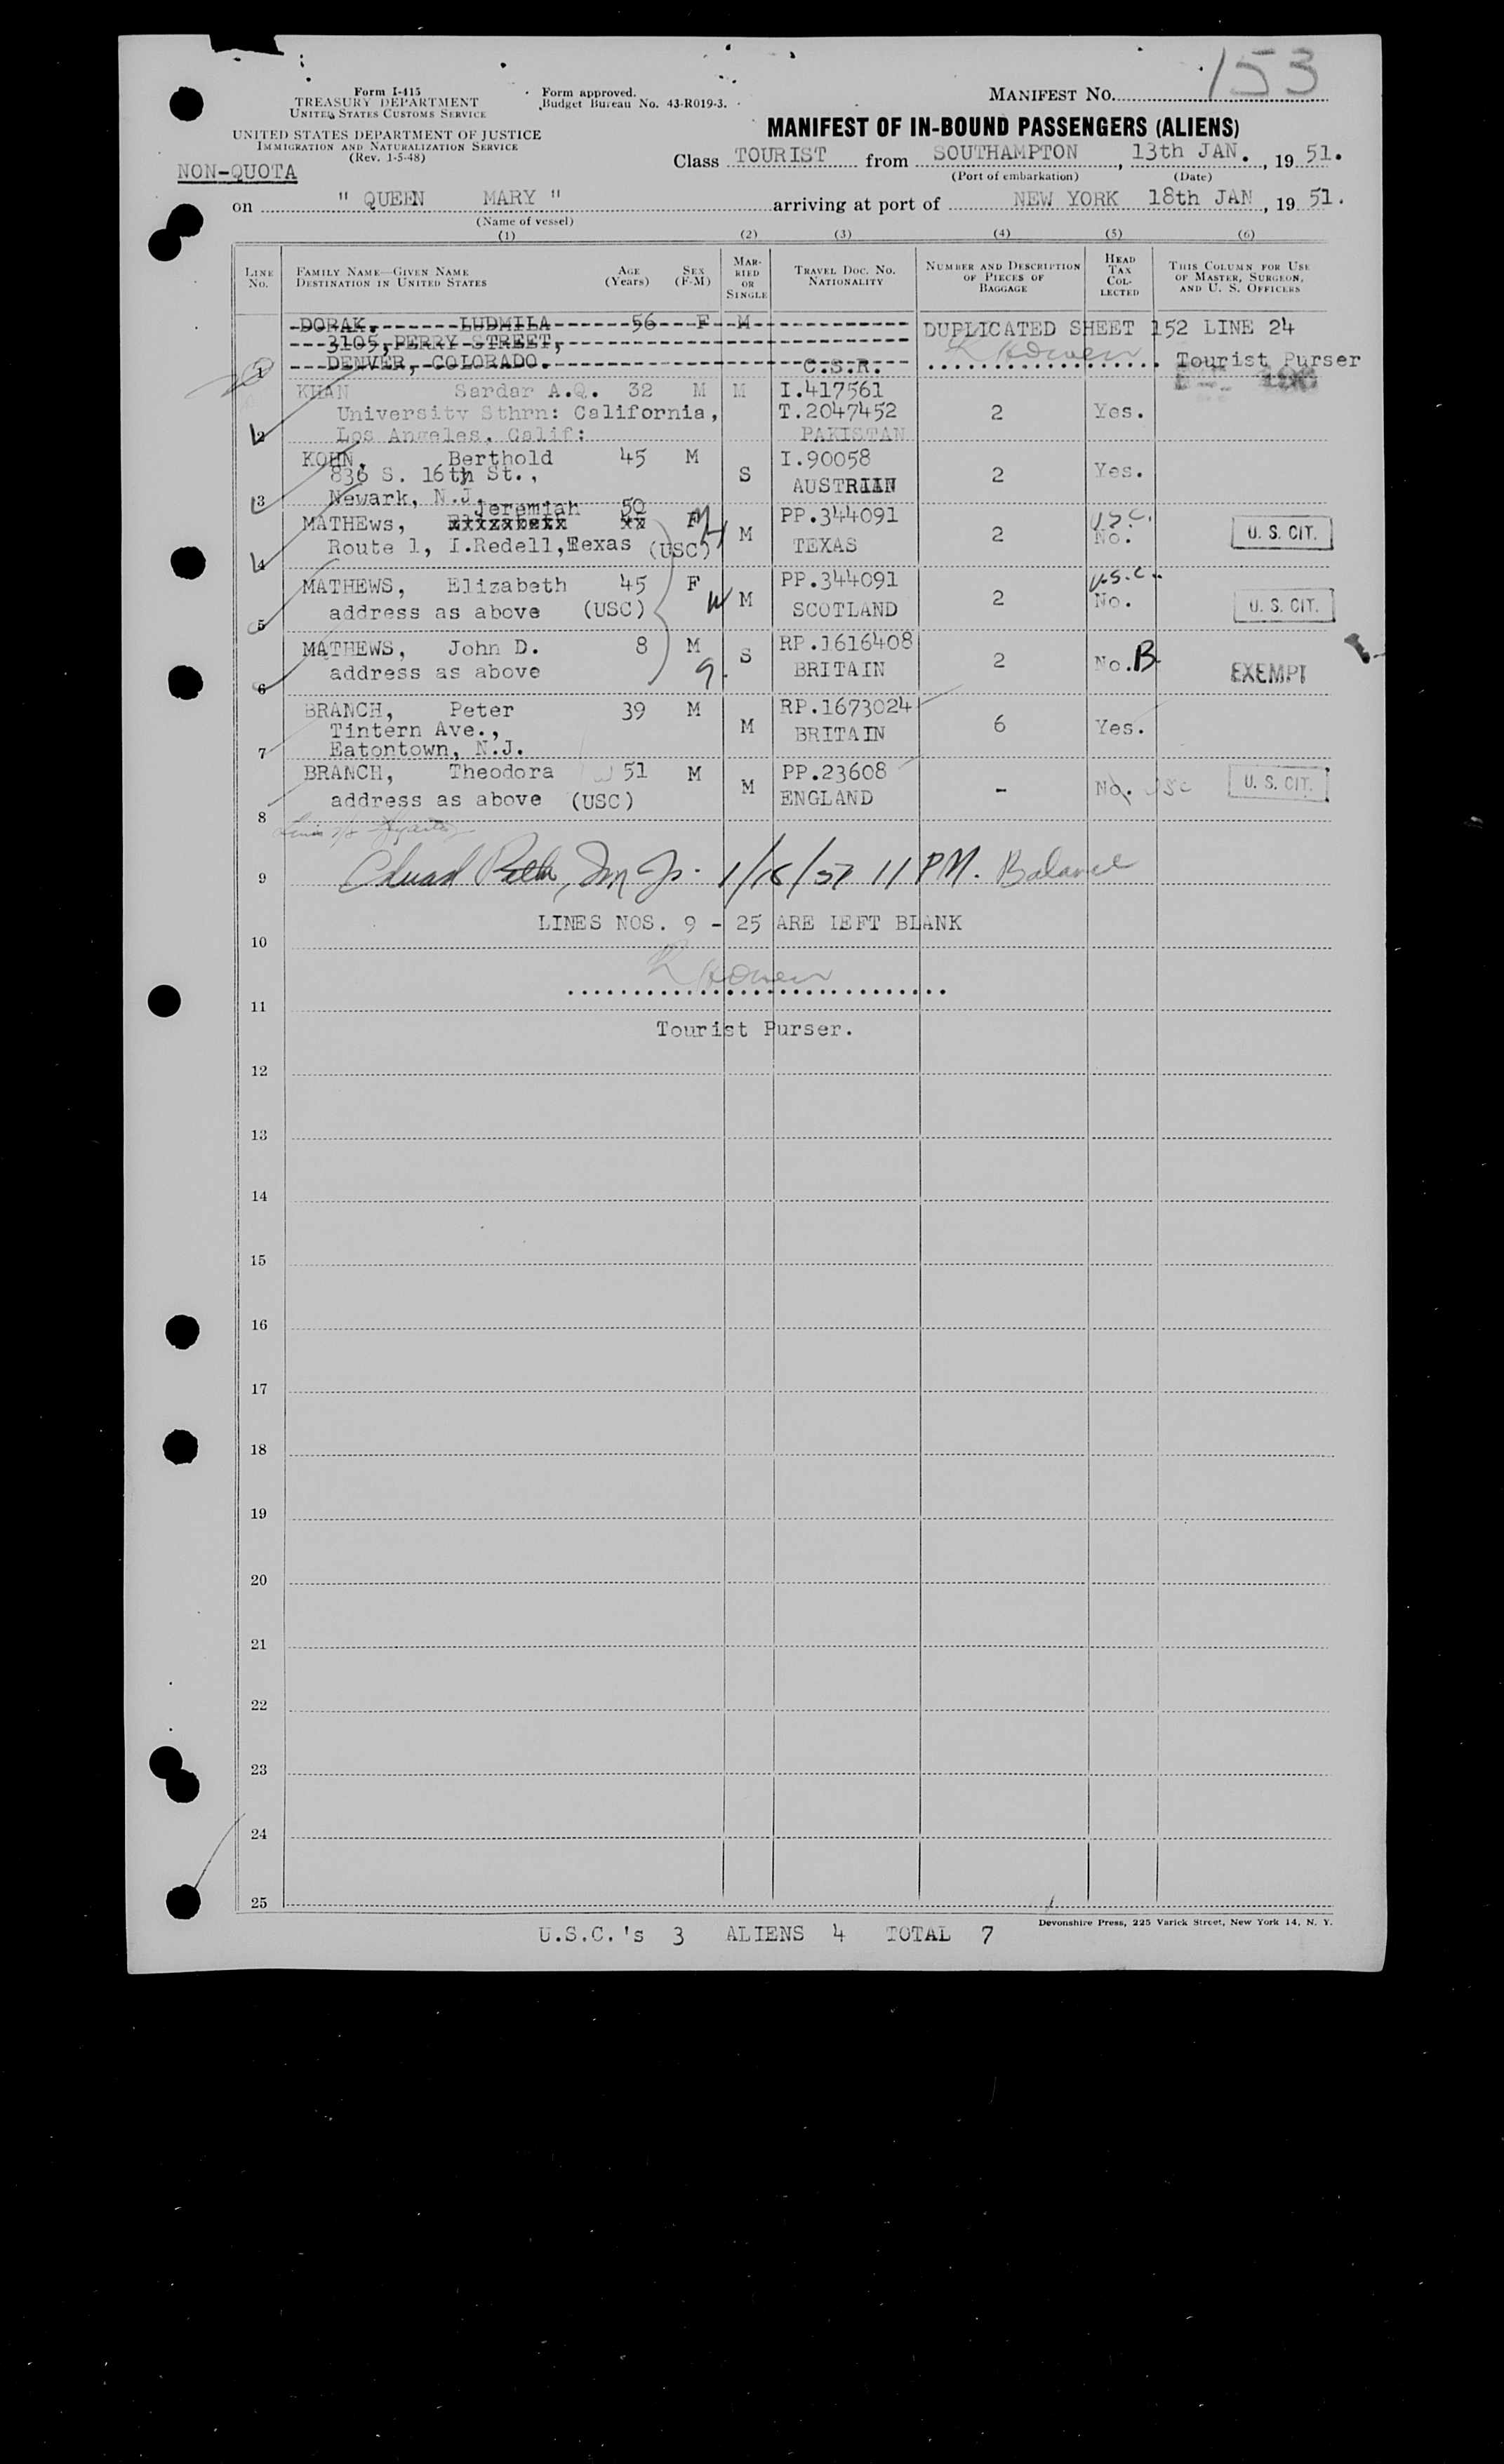 153
Form I-415
TREASURY DEPARTMENT
UNITED STATES CUSTOMS SERVICE
UNITED STATES DEPARTMENT OF JUSTICE
IMMIGRATION AND NATURALIZATION SERVICE
(Rev. 1-5-48)
NON-QUOTA
Form approved.
Budget Bureau No. 43-R019-3.
MANIFEST NO.
MANIFEST OF IN-BOUND PASSENGERS (ALIENS)
Class TOURIST from SOUTHAMPTON, 13th JAN., 19 51.
(Port of embarkation) (Date)
on " QUEEN MARY " arriving at port of NEW YORK 18th JAN, 19 51.
(Name of vessel)
(1) (2) (3) (4) (5) (6)
LINE NO. FAMILY NAME—GIVEN NAME DESTINATION IN UNITED STATES AGE (Years) SEX (F-M) MARRIED OR SINGLE TRAVEL DOC. NO. NATIONALITY NUMBER AND DESCRIPTION OF PIECES OF BAGGAGE HEAD TAX COLLECTED THIS COLUMN FOR USE OF MASTER, SURGEON, AND U. S. OFFICERS
DORAK, LUDMILA 56 F M DUPLICATED SHEET 152 LINE 24
3105, PERRY STREET,
1 DENVER, COLORADO. C.S.R. Tourist Purser
KHAN Sardar A.Q. 32 M M I.417561
University Sthrn: California, T.2047452 2 Yes.
2 Los Angeles, Calif: PAKISTAN
KOHN, Berthold 45 M I.90058
836 S. 16th St., S AUSTRIAN 2 Yes.
3 Newark, N.J.
Jeremiah 50
MATHEws, Elizabeth xx M PP.344091 U.S.C.
Route 1, I.Redell, Texas (USC) H M TEXAS 2 No. U. S. CIT.
4
MATHEWS, Elizabeth 45 F PP.344091 U.S.C.
address as above (USC) W M SCOTLAND 2 No. U. S. CIT.
5
MATHEWS, John D. 8 M S RP.1616408
address as above BRITAIN 2 No. B EXEMPT
6
BRANCH, Peter 39 M RP.1673024
Tintern Ave., M BRITAIN 6 Yes.
7 Eatontown, N.J.
BRANCH, Theodora 51 M PP.23608
address as above (USC) M ENGLAND - No. USC U. S. CIT.
8
9 1/18/51 11 PM. Balance
LINES NOS. 9 - 25 ARE LEFT BLANK
10
11
Tourist Purser.
12
13
14
15
16
17
18
19
20
21
22
23
24
25
Devonshire Press, 225 Varick Street, New York 14, N. Y.
U.S.C.'s 3 ALIENS 4 TOTAL 7